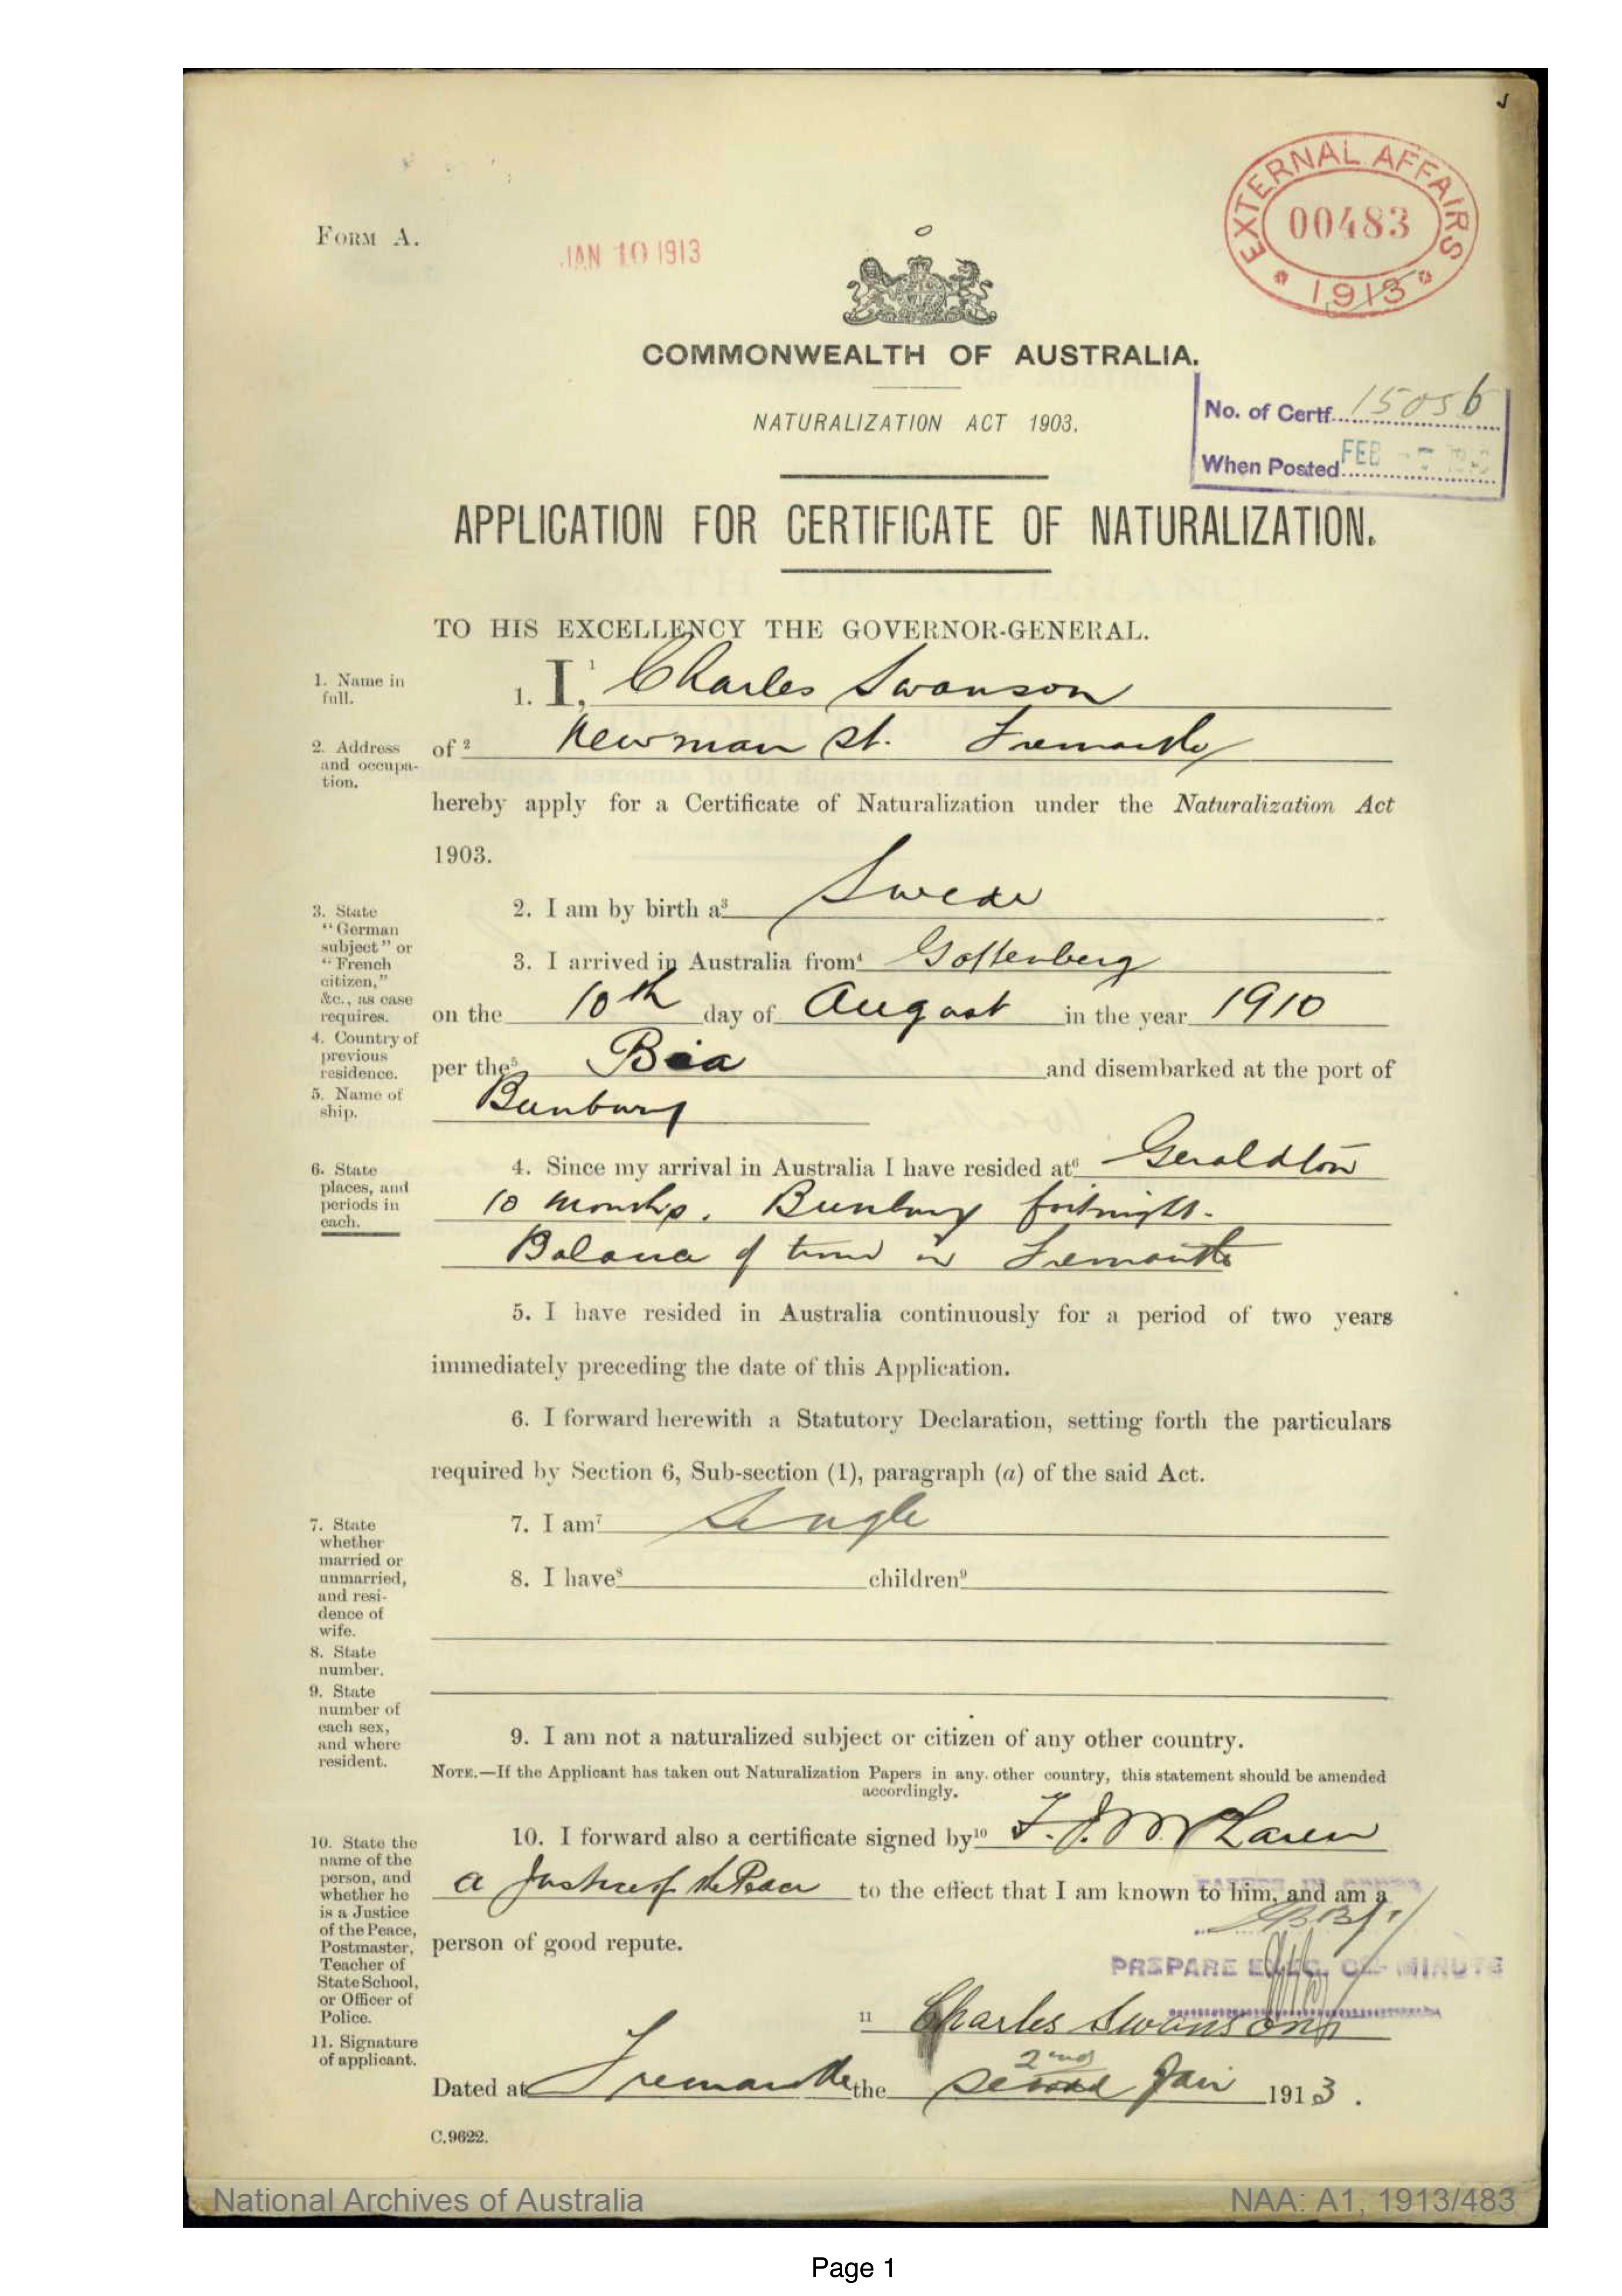 FORM A.
JAN 10 1913
EXTERNAL AFFAIRS
00483
1913
COMMONWEALTH OF AUSTRALIA.
NATURALIZATION ACT 1903.
No. of Certf. 15056
When Posted FEB
APPLICATION FOR CERTIFICATE OF NATURALIZATION.
TO HIS EXCELLENCY THE GOVERNOR-GENERAL.
1. Name in full.
1. I,¹ Charles Swanson
2. Address and occupa-tion.
of ² Newman St. Fremantle
hereby apply for a Certificate of Naturalization under the Naturalization Act
1903.
3. State "German subject" or "French citizen," &c., as case requires.
2. I am by birth a³ Swede
3. I arrived in Australia from⁴ Gottenberg
on the 10th day of August in the year 1910
4. Country of previous residence.
per the⁵ and disembarked at the port of
5. Name of ship.
Bunbury
6. State places, and periods in each.
4. Since my arrival in Australia I have resided at⁶ Geraldton
10 months. Bunbury fortnight.
Balance of time in Fremantle
5. I have resided in Australia continuously for a period of two years
immediately preceding the date of this Application.
6. I forward herewith a Statutory Declaration, setting forth the particulars
required by Section 6, Sub-section (1), paragraph (a) of the said Act.
7. State whether married or unmarried, and resi-dence of wife.
7. I am⁷ Single
8. I have⁸ children⁹
8. State number.
9. State number of each sex, and where resident.
9. I am not a naturalized subject or citizen of any other country.
NOTE.—If the Applicant has taken out Naturalization Papers in any other country, this statement should be amended
accordingly.
10. State the name of the person, and whether he is a Justice of the Peace, Postmaster, Teacher of State School, or Officer of Police.
10. I forward also a certificate signed by¹⁰ F. J. McLaren
a Justice of the Peace to the effect that I am known to him, and am a
person of good repute.
PREPARE MINUTE
11 Charles Swanson
11. Signature of applicant.
2nd
Dated at Fremantle the second Jan 1913.
C.9622.
National Archives of Australia
NAA: A1, 1913/483
Page 1